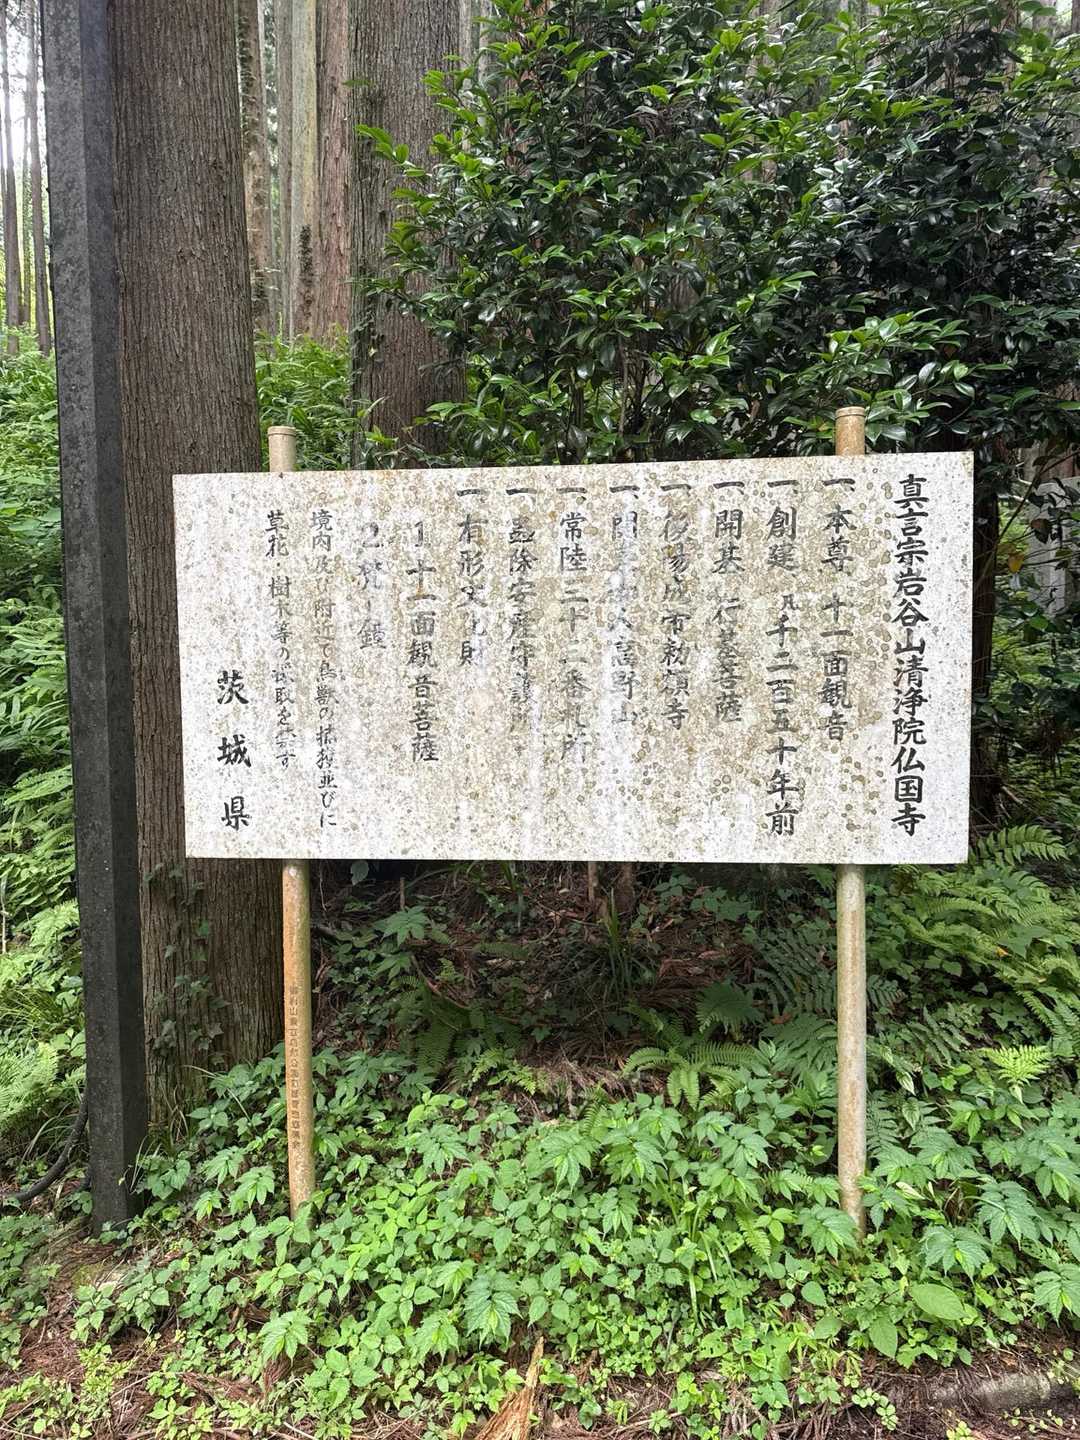 真言宗岩谷山清浄院仏国寺
一、本尊 十一面観音
一、創建 凡千二百五十年前
一、開基 行基菩薩
一、後陽成帝勅願寺
一、関東女人高野山
一、常陸三十三番札所
一、安産守護所
一、有形文化財
1 十一面観音菩薩
2 梵鐘
境内及び附近で鳥獣の捕獲並びに
草花・樹木等の採取を禁ず
茨城県